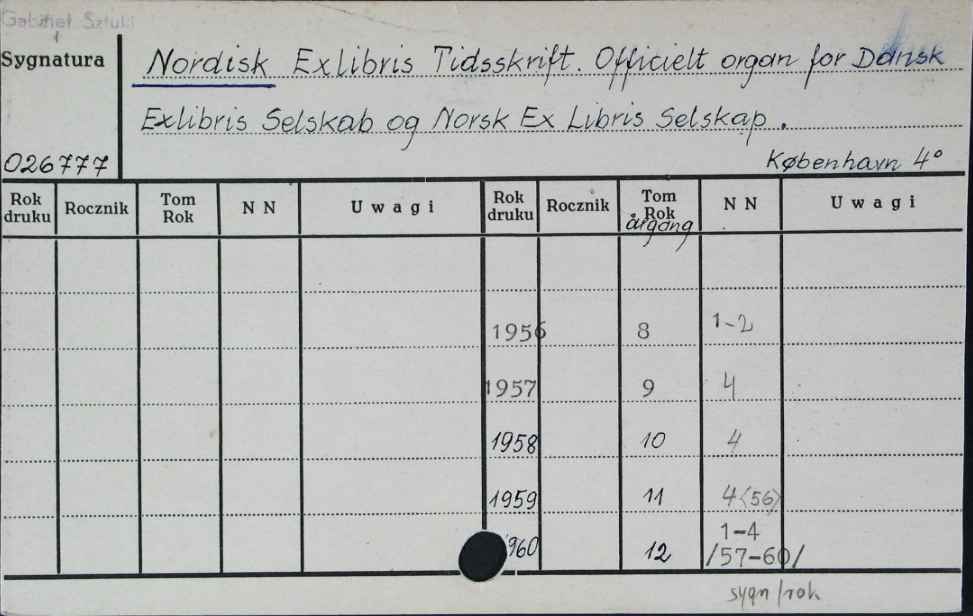 Gabinet Sztuki
Sygnatura
Nordisk Exlibris Tidsskrift. Officielt organ for Dansk
Exlibris Selskab og Norsk Ex Libris Selskap.
026777
København 4°
Rok druku Rocznik Tom Rok N N Uwagi Rok druku Rocznik Tom Rok årgang N N Uwagi
1956 8 1-2
1957 9 4
1958 10 4
1959 11 4<56>
960 12 1-4 /57-60/
sygn/rok